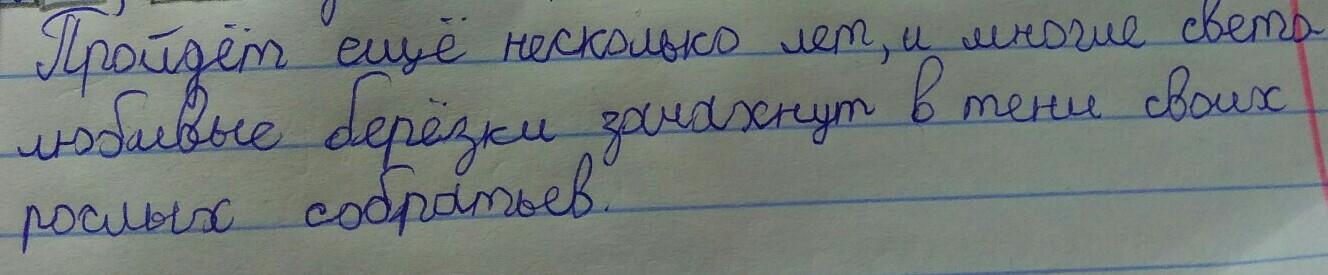 Пройдёт ещё несколько лет, и многие свето-
любивые берёзки зачахнут в тени своих
рослых собратьев.